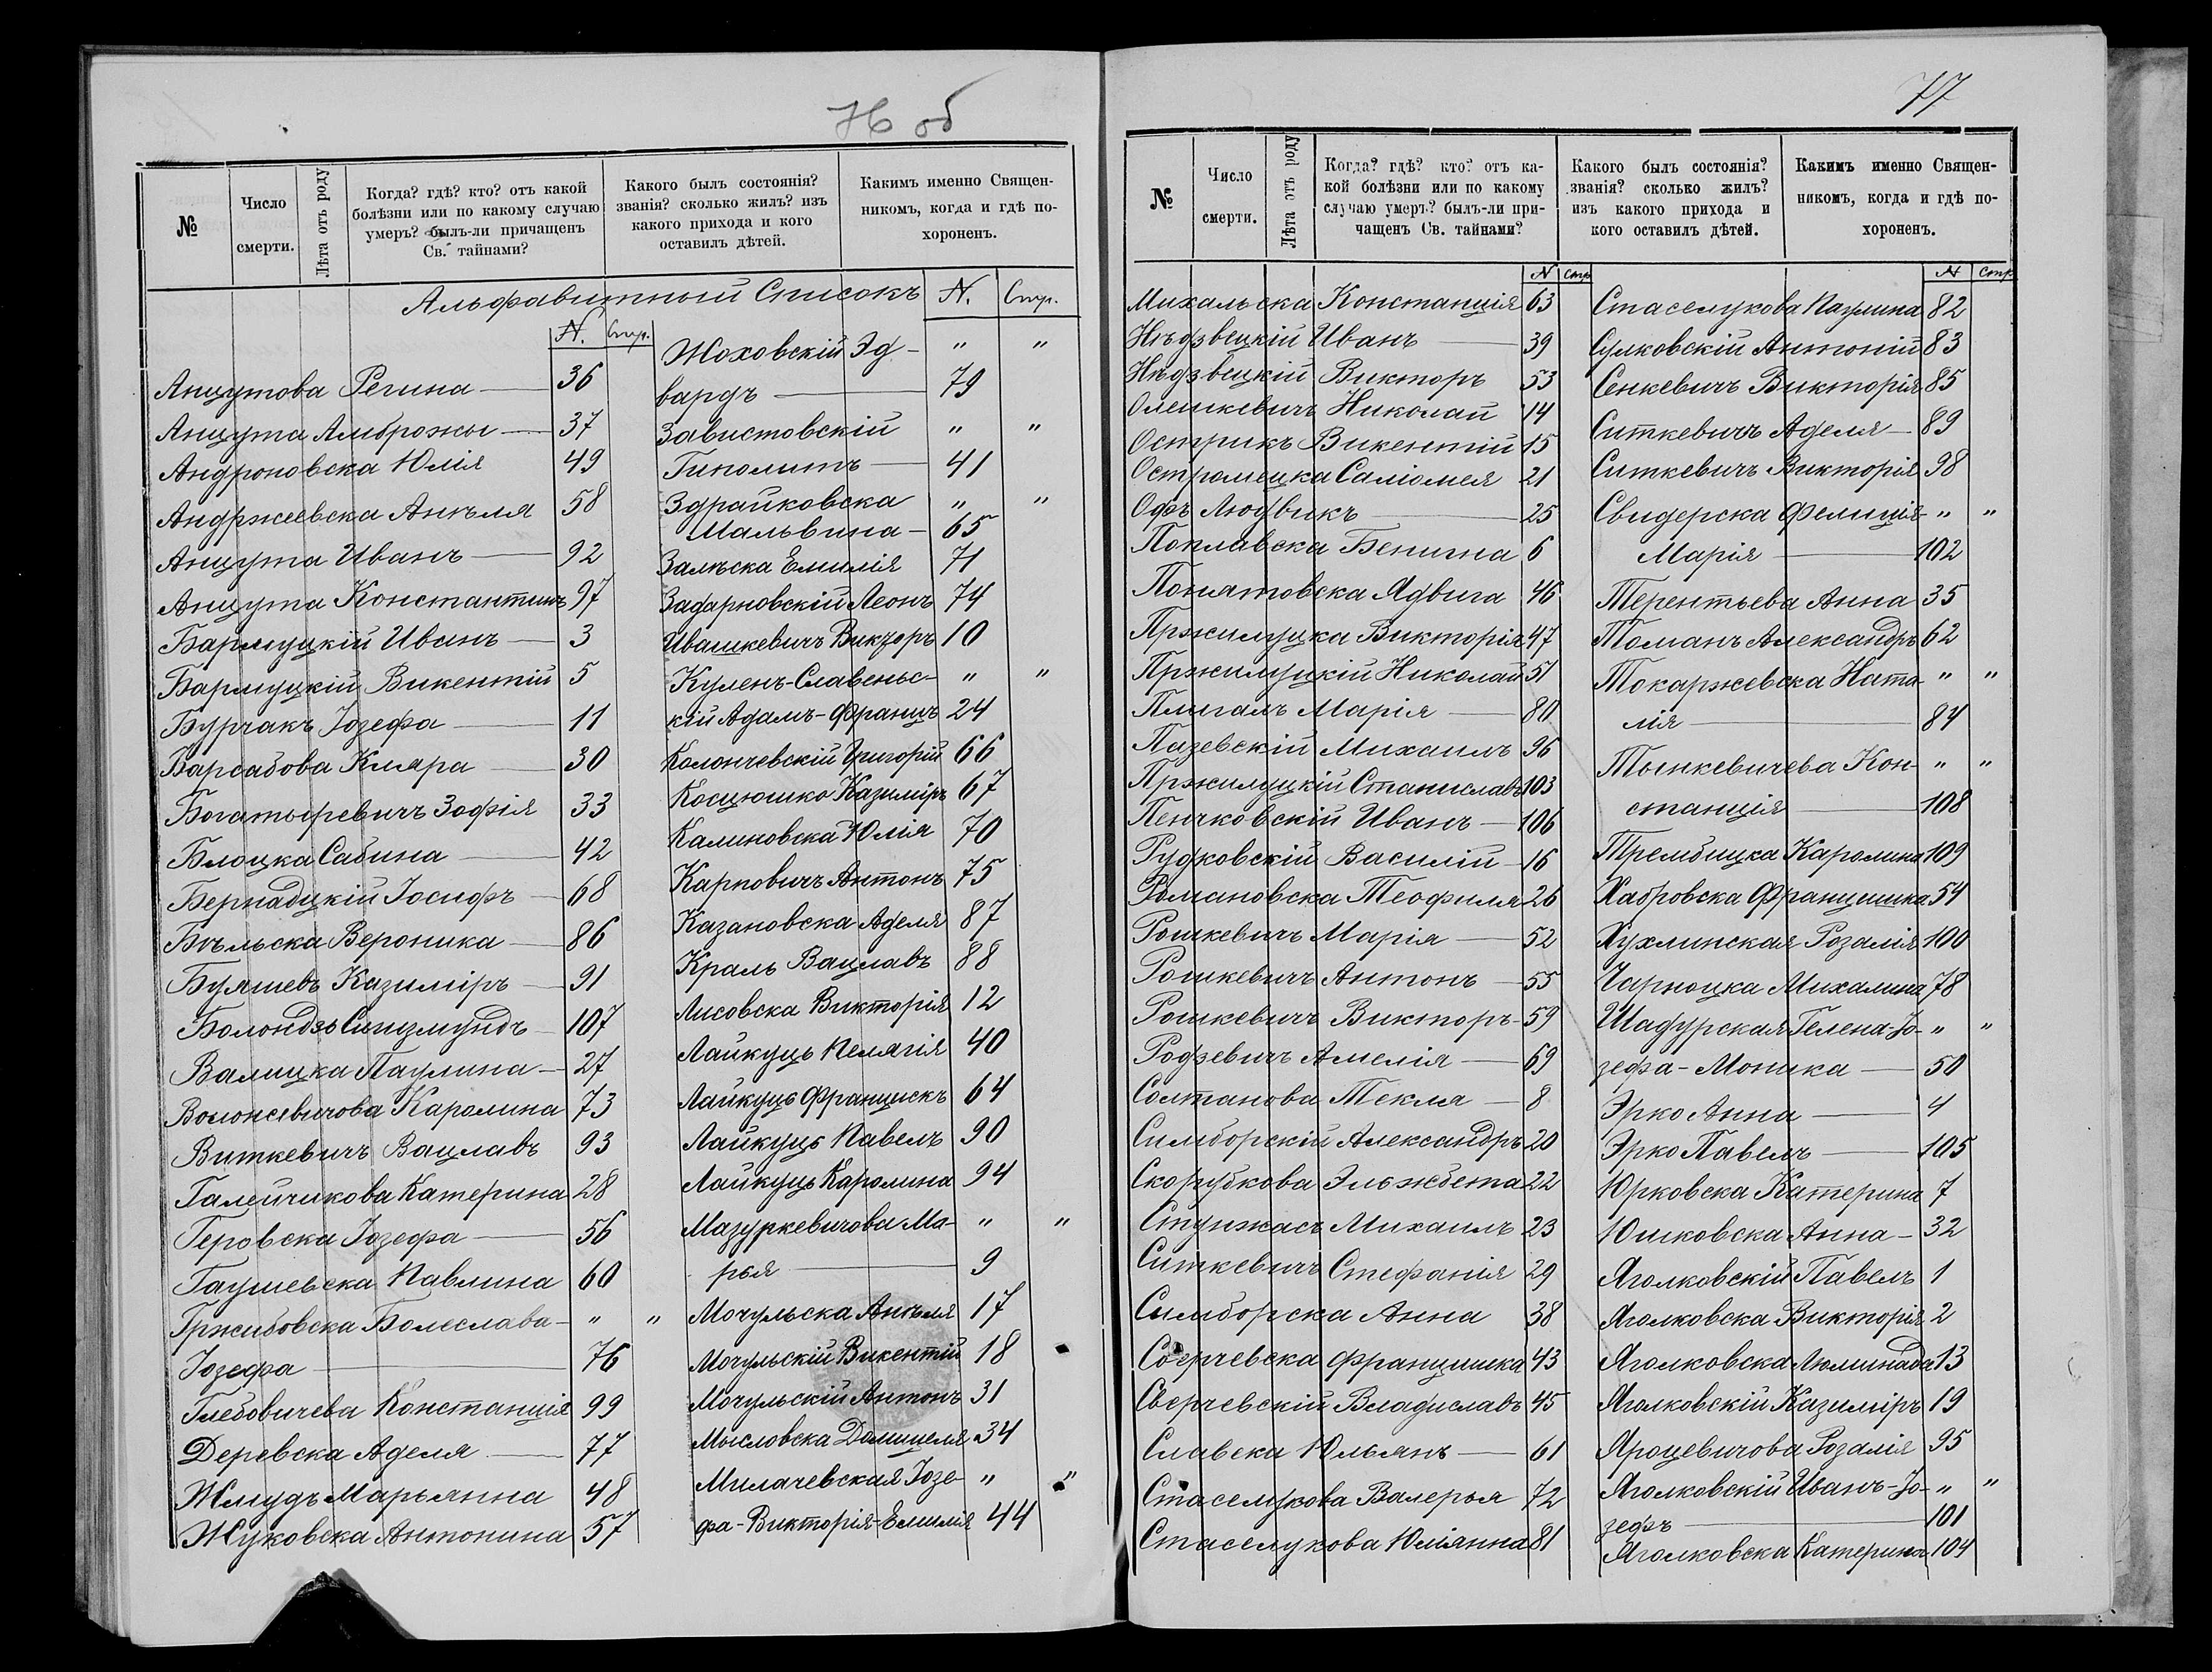 76 об
№
Число смерти.
Лѣта отъ роду
Когда? гдѣ? кто? отъ какой
болѣзни или по какому случаю
умеръ? былъ-ли причащенъ
Св. тайнами?
Какого былъ состоянія?
званія? сколько жилъ? изъ
какого прихода и кого
оставилъ дѣтей.
Какимъ именно Священ-
никомъ, когда и гдѣ по-
хороненъ.
Альфавитный Списокъ
N. Стр.
Анцутова Регина — 36
Анцута Амброжы — 37
Андроновска Юлія 49
Андржеевска Анѣля 58
Анцута Иванъ — 92
Анцута Константинъ 97
Бармуцкій Иванъ — 3
Бармуцкій Викентій 5
Бурчакъ Іозефа — 11
Варсабова Кляра — 30
Богатыревичъ Зофія 33
Блоцка Сабина — 42
Бернадцкій Іосифъ — 68
Бѣльска Вероника — 86
Буяшевъ Казиміръ — 91
Болондзь Сигизмундъ — 107
Валицка Паулина — 27
Волонсевичова Каролина 73
Виткевичъ Вацлавъ 93
Галейчикова Катерина 28
Геровска Іозефа — 56
Гаушевска Павлина 60
Гржибовска Болеслава- " "
Іозефа — 76
Глебовичева Констанція 99
Деревска Аделя — 77
Жмудъ Марьянна 48
Жуковска Антонина 57
N. Стр.
Жоховскій Эд- " "
вардъ — 79
Завистовскій " "
Гиполитъ — 41
Здрайковска " "
Мальвина — 65
Залѣска Емилія 71
Задарновскій Леонъ 74
Ивашкевичъ Викторъ 10
Кулень-Славеньс- " "
кій Адамъ-Францъ 24
Колончевскій Григорій 66
Косцюшко Казиміръ 67
Калиновска Юлія 70
Карповичъ Антонъ 75
Казановска Аделя 87
Краль Вацлавъ 88
Лисовска Викторія 12
Лайкуць Пелягія 40
Лайкуць Францискъ 64
Лайкуць Павелъ 90
Лайкуць Каролина 94
Мазуркевичова Ма- " "
рья — 9
Мочульска Анѣля 17
Мочульскій Викентій 18
Мочульскій Антонъ 31
Мысловска Домицеля 34
Милачевская Іозе- " "
фа-Викторія-Емилія 44
77
№
Число смерти.
Лѣта отъ роду
Когда? гдѣ? кто? отъ ка-
кой болѣзни или по какому
случаю умеръ? былъ-ли при-
чащенъ Св. тайнами?
Какого былъ состоянія?
званія? сколько жилъ?
изъ какого прихода и
кого оставилъ дѣтей.
Какимъ именно Священ-
никомъ, когда и гдѣ по-
хороненъ.
N Стр
Михальска Констанція 63
Нѣдзвецкій Иванъ — 39
Нѣдзвецкій Викторъ 53
Олешкевичъ Николай 14
Острикъ Викентій 15
Остромецка Саліомея 21
Офъ Людвикъ — 25
Поплавска Бенигна 6
Понятовска Ядвига 46
Пржилуцка Викторія 47
Пржилуцкій Николай 51
Плигалъ Марія — 80
Пазевскій Михаилъ 96
Пржилуцкій Станиславъ 103
Пенчковскій Иванъ — 106
Рудковскій Василій 16
Романовска Теофиля 26
Рошкевичъ Марія — 52
Рошкевичъ Антонъ — 55
Рошкевичъ Викторъ — 59
Родзевичъ Амелія — 69
Солтанова Текля — 8
Симборскій Александръ 20
Скорубкова Эльжбета 22
Стдижасъ Михаилъ 23
Ситкевичъ Стефанія 29
Симборска Анна 38
Сверчевска Францишка 43
Сверчевскій Владиславъ 45
Славска Юльянъ — 61
Стаселукова Валерья 72
Стаселукова Юліянна 81
N Стр
Стаселукова Паулина 82
Сулковскій Антоній 83
Сенкевичъ Викторія 85
Ситкевичъ Аделя — 89
Ситкевичъ Викторія 98
Свидерска Фелиція- " "
Марія — 102
Терентьева Анна 35
Томанъ Александръ 62
Токаржевска Ната- " "
лія — 84
Тынкевичева Кон- " "
станція — 108
Трембицка Каролина 109
Хабровска Францишка 54
Хухлинская Розалія 100
Чарноцка Михалина 78
Шадурская Гелена-Іо- " "
зефа-Моника — 50
Эрко Анна — 4
Эрко Павелъ — 105
Юрковска Катерина 7
Юшковска Анна — 32
Яголковскій Павелъ 1
Яголковска Викторія 2
Яголковска Люминада 13
Яголковскій Казиміръ 19
Яроцевичова Розалія 95
Яголковскій Иванъ-Іо- " "
зефъ — 101
Яголковска Катерина 104